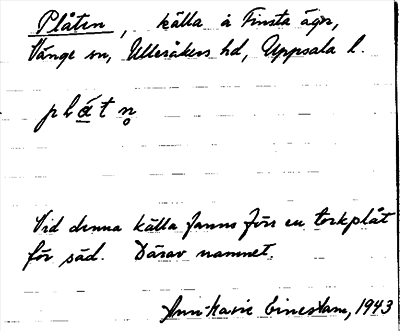 Plåten, källa å Finsta ägor,
Vänge sn, Ulleråkers hd, Uppsala l.
plåtn̥
Vid denna källa fanns förr en torkplåt
för säd. Därav namnet.
Ann-Marie 1943